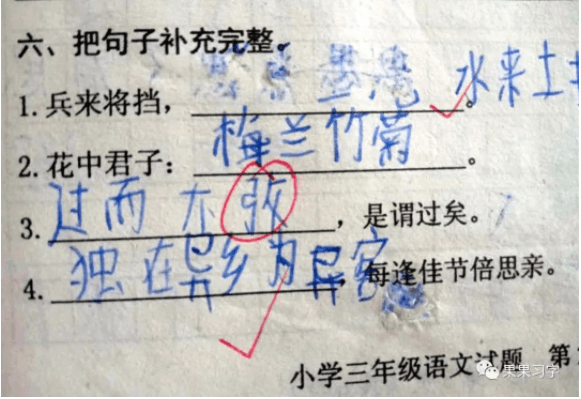 六、把句子补充完整。
1.兵来将挡，水来土
2.花中君子：梅兰竹菊。
3.过而不改，是谓过矣。
4.独在异乡为异客，每逢佳节倍思亲。
小学三年级语文试题 第
果果习字